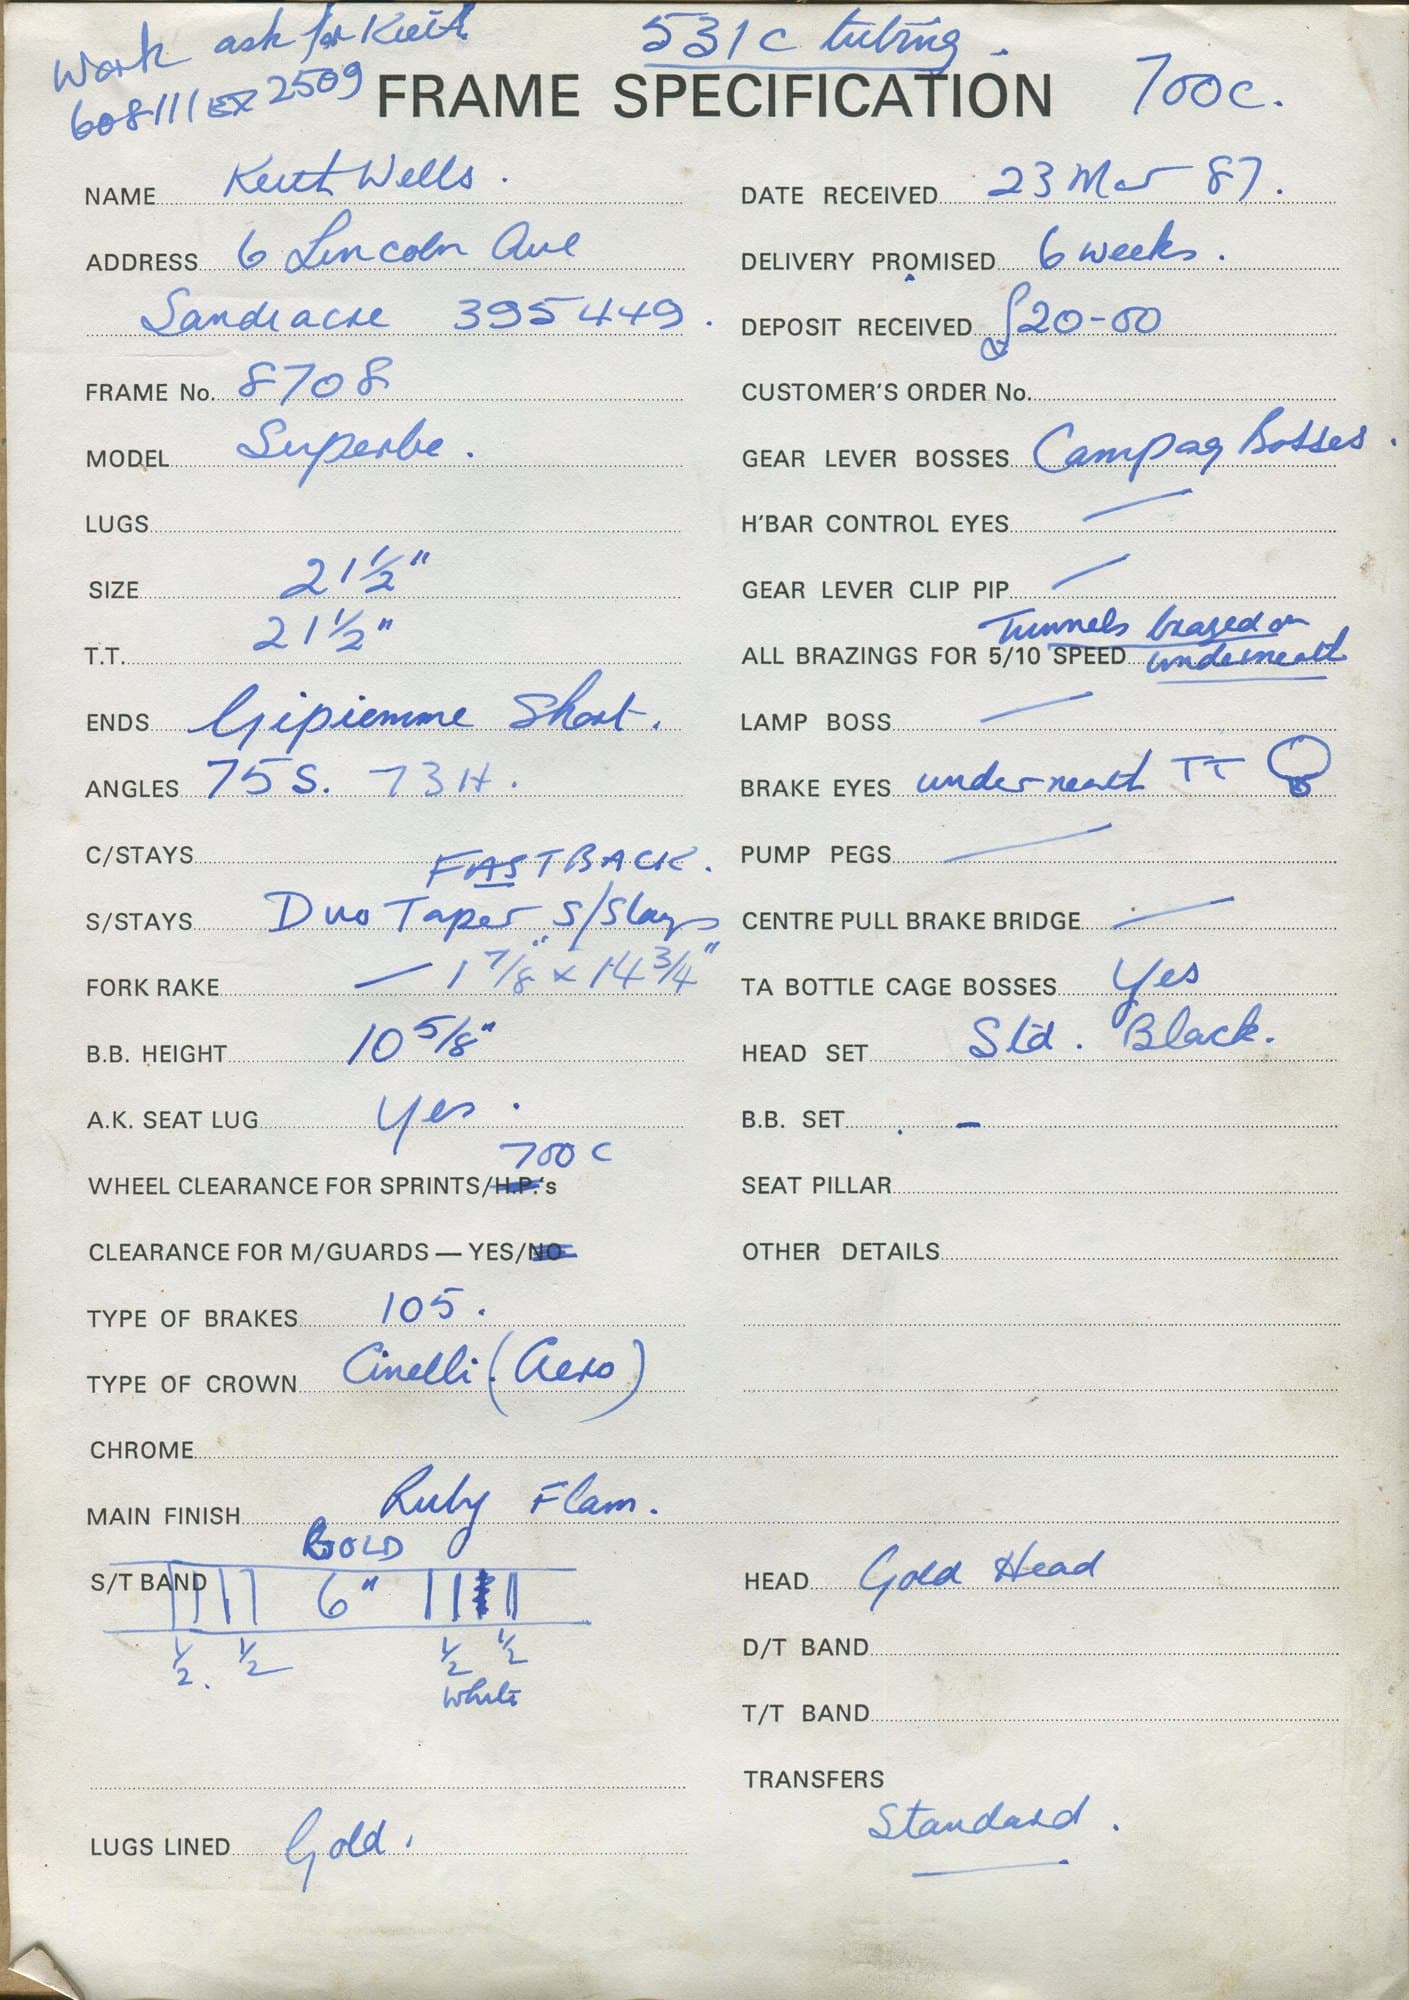 Work ask for Keith
608111 EX 2509
531c tubing.
FRAME SPECIFICATION 700c.
NAME Keith Wells.
ADDRESS 6 Lincoln Ave
Sandiacre 395449.
FRAME No. 8708
MODEL Superbe.
LUGS
SIZE 21 1/2"
T.T. 21 1/2"
ENDS Gipiemme Short.
ANGLES 75 S. 73 H.
C/STAYS
FASTBACK.
S/STAYS Duo Taper S/Stays
FORK RAKE — 1 7/8" x 14 3/4"
B.B. HEIGHT 10 5/8"
A.K. SEAT LUG Yes.
700c
WHEEL CLEARANCE FOR SPRINTS/H.P.'s
CLEARANCE FOR M/GUARDS — YES/NO
TYPE OF BRAKES 105.
TYPE OF CROWN Cinelli (Aero)
CHROME
MAIN FINISH Ruby Flam.
GOLD
S/T BAND 6"
1/2. 1/2 1/2 1/2
White
LUGS LINED Gold.
DATE RECEIVED 23 Mar 87.
DELIVERY PROMISED 6 weeks.
DEPOSIT RECEIVED £20-00
CUSTOMER'S ORDER No.
GEAR LEVER BOSSES Campag Bosses.
H'BAR CONTROL EYES —
GEAR LEVER CLIP PIP —
Tunnels brazed on
ALL BRAZINGS FOR 5/10 SPEED underneath
LAMP BOSS —
BRAKE EYES underneath TT
PUMP PEGS —
CENTRE PULL BRAKE BRIDGE —
TA BOTTLE CAGE BOSSES Yes
HEAD SET Std. Black.
B.B. SET -
SEAT PILLAR
OTHER DETAILS
HEAD Gold Head
D/T BAND
T/T BAND
TRANSFERS
Standard.